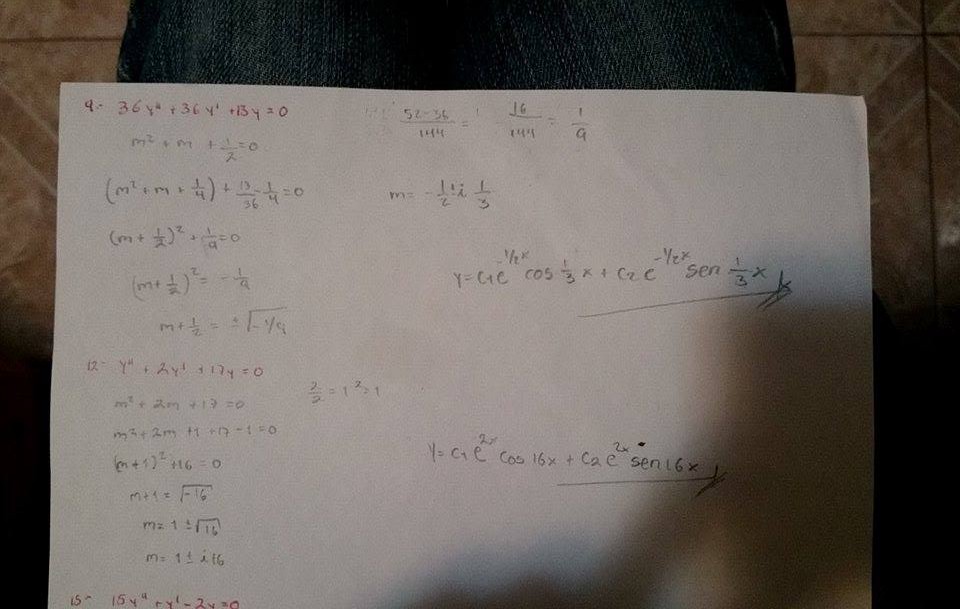 9.- 36y" + 36y' + 13y = 0
m² + m + 1/2 = 0
(m² + m + 1/4) + 13/36 - 1/4 = 0
(m + 1/2)² + 1/9 = 0
(m + 1/2)² = -1/9
m + 1/2 = ± √-1/9
52-36/144 = 16/144 = 1/9
m = -1/2 ± i 1/3
y = c1e^-1/2x cos 1/3 x + c2e^-1/2x sen 1/3 x
12- y" + 2y' + 17y = 0
m² + 2m + 17 = 0
m² + 2m + 1 + 17 - 1 = 0
(m + 1)² + 16 = 0
m + 1 = √-16
m = 1 ± √16
m = 1 ± i 16
2/2 = 1² = 1
y = c1e^2x cos 16x + c2e^2x sen 16x
15- 15y" + y' - 2y = 0